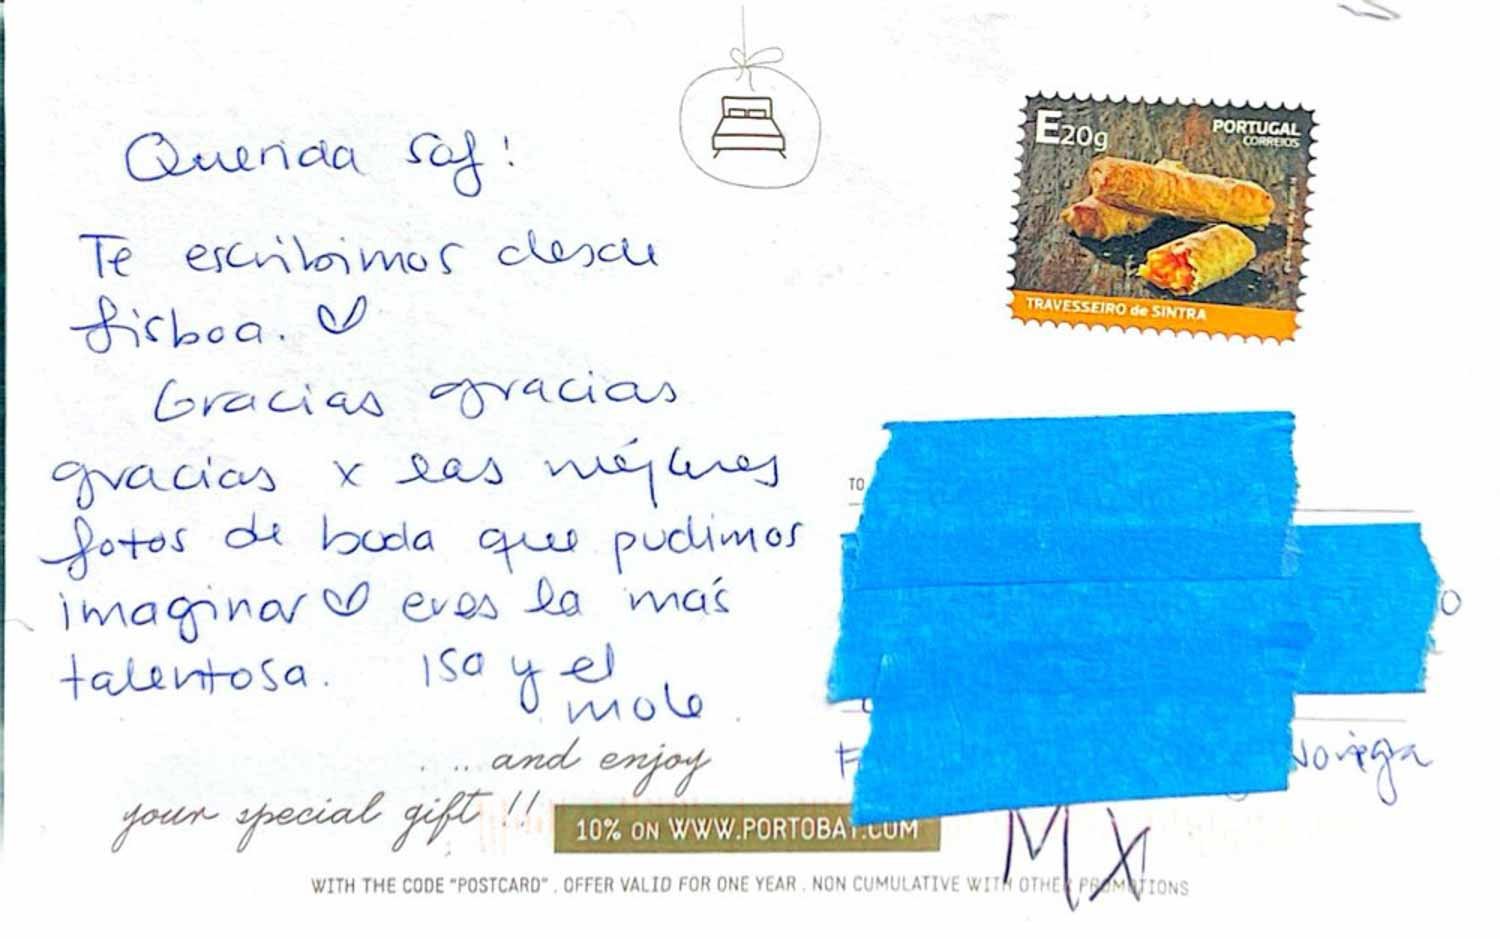 Querida Saf!
Te escribimos desde
Lisboa. ♡
Gracias gracias
gracias x las méjores
fotos de boda que pudimos
imaginar ♡ eres la más
talentosa. Isa y el
mole.
... and enjoy
your special gift!!
10% ON WWW.PORTOBAY.COM
WITH THE CODE "POSTCARD". OFFER VALID FOR ONE YEAR. NON CUMULATIVE WITH OTHER PROMOTIONS
E20g
PORTUGAL
CORREIOS
TRAVESSEIRO de SINTRA
TO
MX